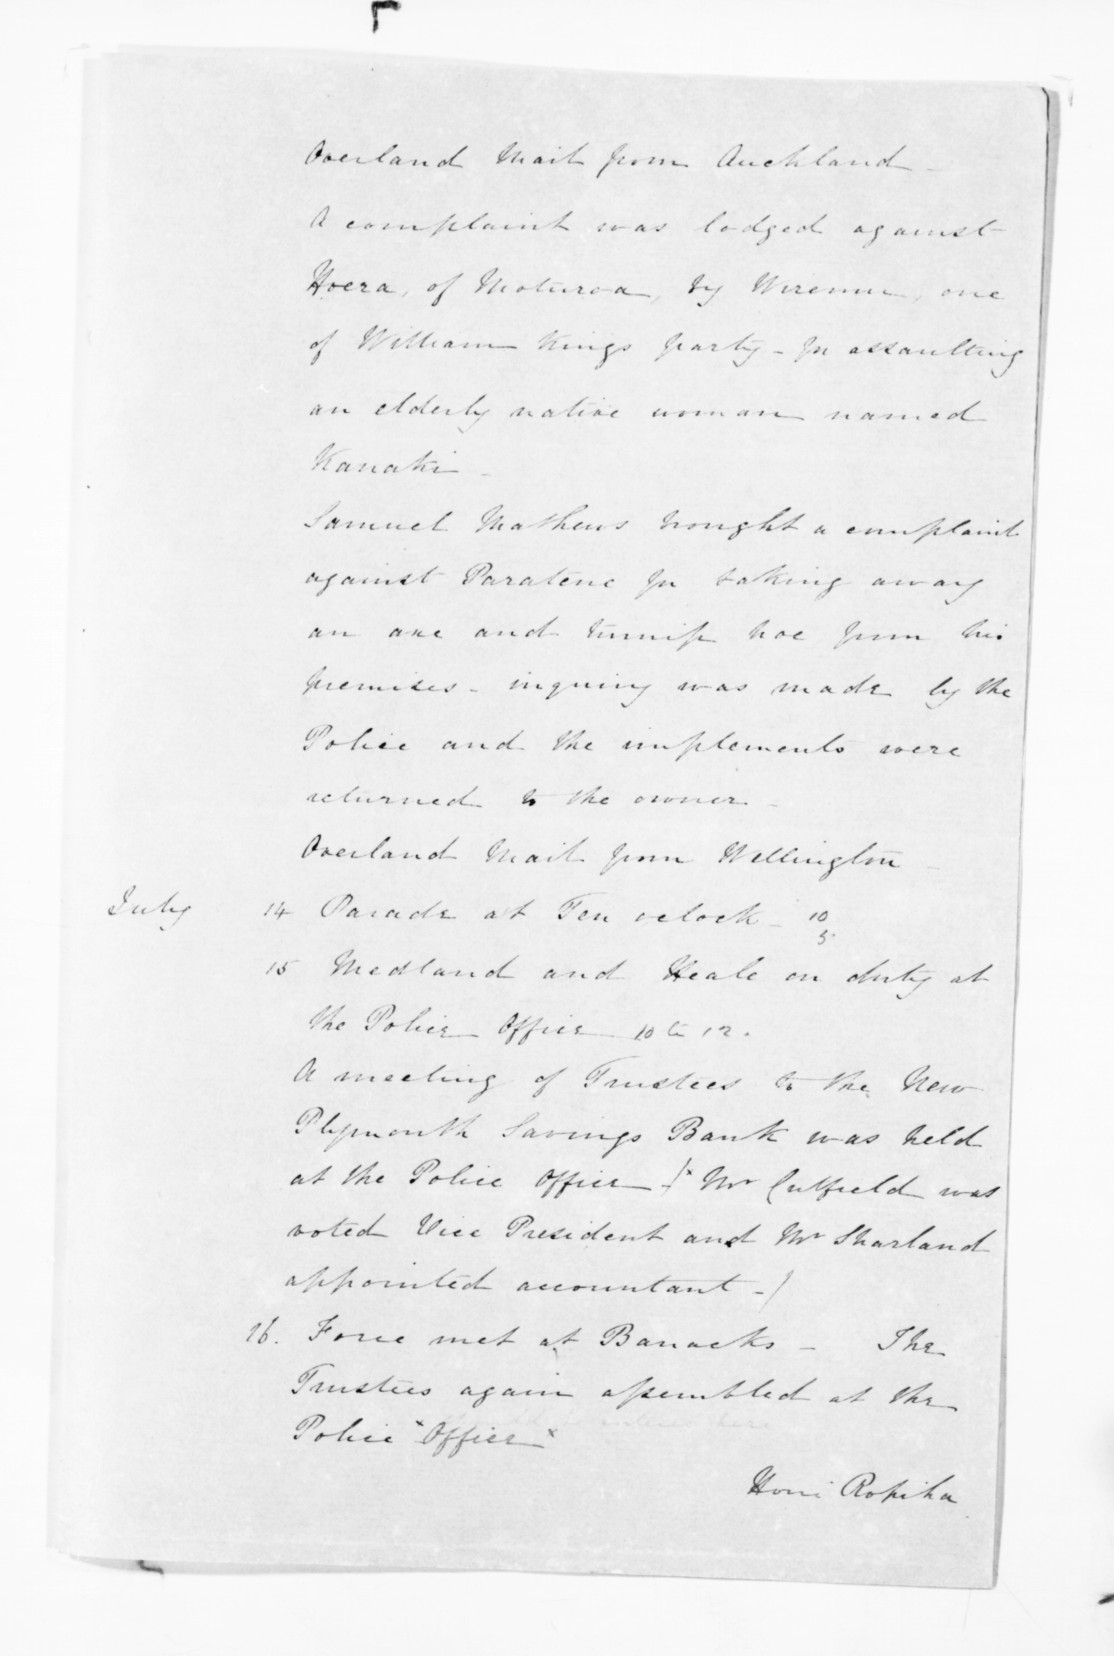 Overland Mail from Auckland -
A complaint was lodged against
Hoera, of Moturoa, by Wiremu, one
of William Kings party - for assaulting
an elderly native woman named
Kanaki -
Samuel Mathews brought a complaint
against Paratene for taking away
an axe and turnip hoe from his
premises - inquiry was made by the
Police and the implements were
returned to the owner -
Overland Mail from Wellington -
July 14 Parade at Ten oclock - 10
5
15 Medland and Heale on duty at
the Police Office 10 to 12.
A meeting of Trustees to the New
Plymouth Savings Bank was held
at the Police Office -)x Mr Cutfield was
voted Vice President and Mr Sharland
appointed accountant -)
16. Force met at Barracks - The
Trustees again assembled at the
Police x Office x
Honi Ropiha